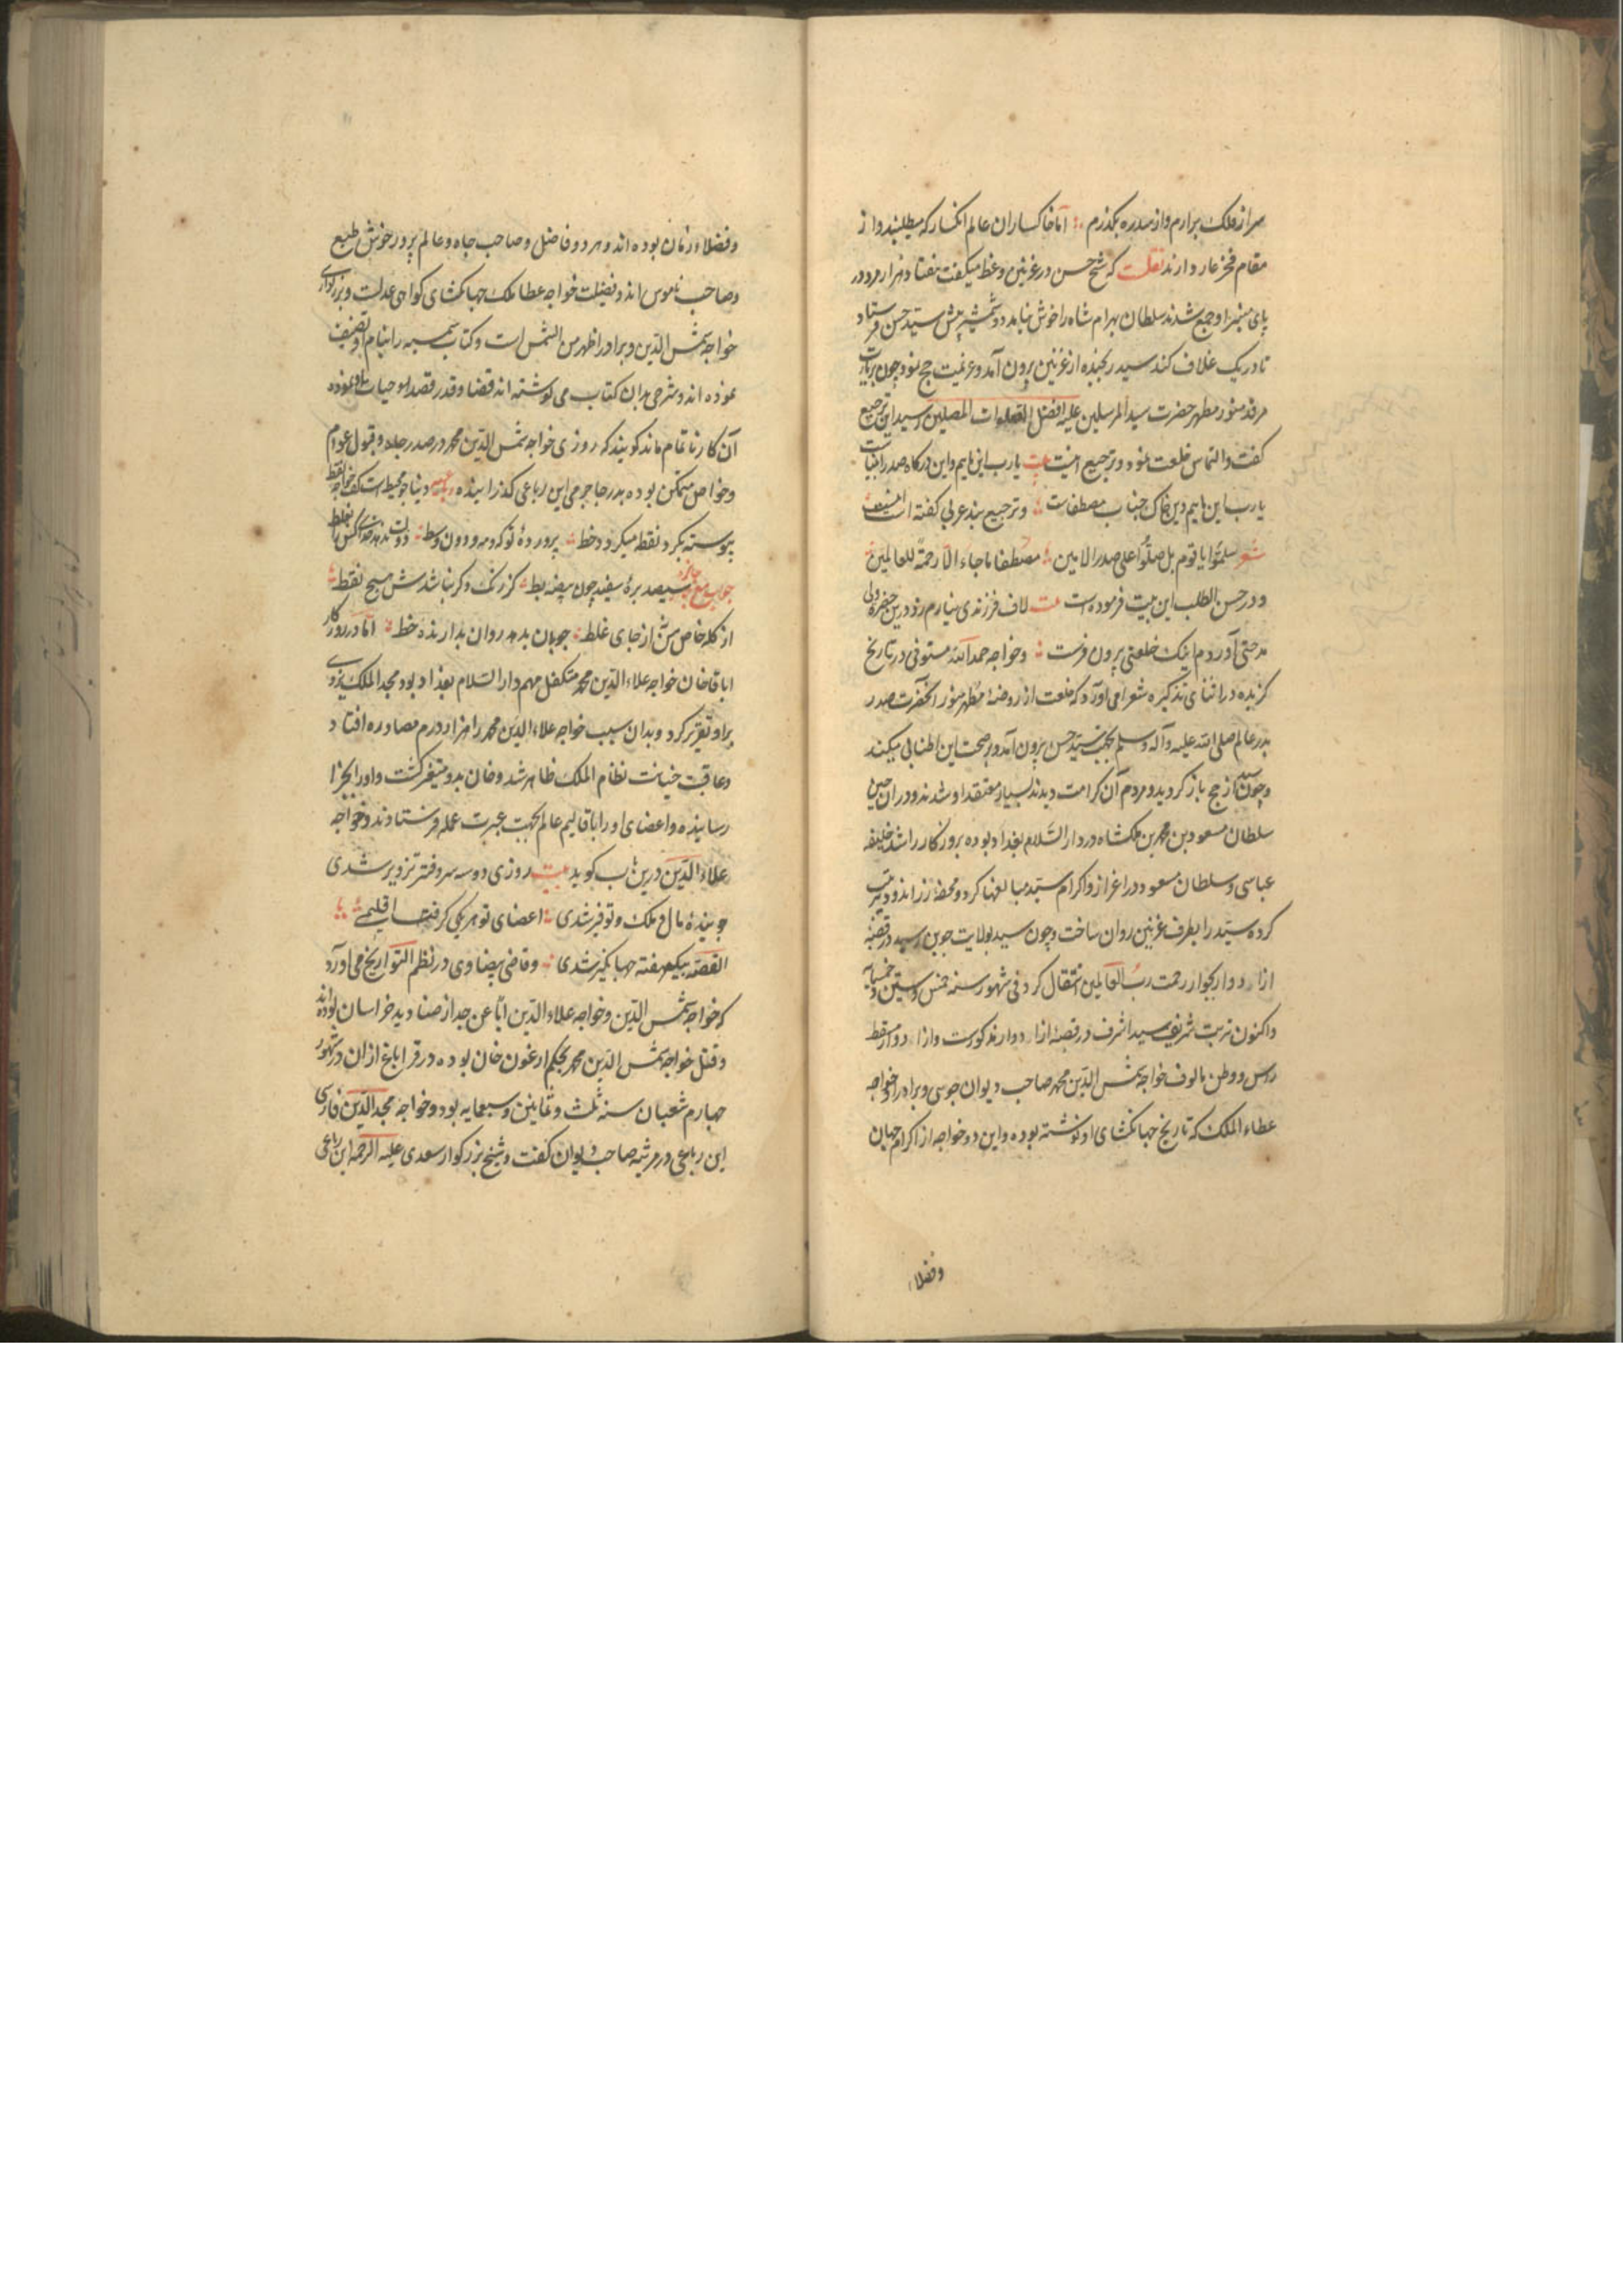 سر از فلک برارم و از سدره بکذرم اما خاکساران عالم انکسار که میطلبند و از
مقام فخر عار دارند نقلست که شیخ حسن در غزنین وعظ میکفت هفتاد هزار مرد در
پای منبر او جمع شدند سلطان بهرام شاه را خوش نیامد دو شمشیر پیش سید حسن فرستاد
تا در یک غلاف کند سید رنجیده از غزنین برون آمد و عزیمت حج نمود چون بزیارت
مرقد منور مطهر حضرت سید المرسلین علیه افضل الصلوات المصلین رسید این ترجیع
کفت و التماس خلعت نمود و ترجیع اینست بیت یا رب این ماییم و این درکاه صدر انبیاست
یا رب این ماییم و این خاک جناب مصطفاست و ترجیع بند عربی کفته است
شعر سلموا یا قوم بل صلوا علی صدر الامین مصطفا ما جاء الا رحمة للعالمین
و در حسن الطلب این بیت فرموده است بیت لاف فرزندی نیارم زد درین حضرت ولی
مدحتی آوردم اینک خلعتی برون فرست و خواجه حمد الله مستوفی در تاریخ
کزیده در اثنای تذکره شعرا می آورد که خلعت از روضه مطهر منور آنحضرت صدر
بدر عالم صلی الله علیه و آله و سلم بجهت سید حسن برون آمد و بر صحت این اطنابی میکند
و چون سید از حج باز کردید و مردم آن کرامت دیدند بسیار معتقد او شدند و در ان حین
سلطان مسعود بن محمد بن ملکشاه در دار السلام بغداد بوده بروزکار راشد خلیفه
عباسی و سلطان مسعود در اعزاز و اکرام سید مبالغها کرد و محفه زر اندود مرتب
کرده سید را بطرف غزنین روان ساخت و چون سید بولایت جوین رسید در قصبه
ازادوار بجوار رحمت رب العالمین انتقال کرد فی شهور سنه خمس و ستین و خمسمایه
و اکنون تربت شریف سید اشرف در قصبه ازادوار مذکورست و ازادوار مسقط
راس و وطن مالوف خواجه شمس الدین محمد صاحب دیوان جوینی و برادر او خواجه
عطاء الملک که تاریخ جهانکشای او نوشته بوده و این دو خواجه از اکرام جهان
وفضلاء
و فضلاء زمان بوده اند و هر دو فاضل و صاحب جاه و عالم پرور خوش طبع
و صاحب ناموس اند و فضیلت خواجه عطا ملک جهانکشای کواهی عدلست و بزرکواری
خواجه شمس الدین و برادر اظهر من الشمس است و کتاب شمسیه را بنام او تصنیف
نموده اند و شرحی بدان کتاب می نوشته اند قضا و قدر قصد او حیات
آن کار ناتمام ماند کویند که روزی خواجه شمس الدین محمد در صدر جاه و قبول عوام
و خواص متمکن بوده بدر جاجرمی این رباعی کذرانیده رباعیه دنیا چو محیط است کف خواجه نقط
پیوسته بکرد نقطه میکردد خط پرورده تو که و مه و دون و وسط دولت ندهد خدای کس را بغلط
جواب مع جایزه سیصد بره سفید چون بیضه بط کز رنک دکر نباشدش هیچ نقط
از کله خاص من از جای غلط چوپان بدهد روان بدارنده خط اما در روزکار
اباقا خان خواجه علاء الدین محمد متکفل مهم دار السلام بغداد بود مجد الملک یزدی
براو تقریر کرد و بدان سبب خواجه علاء الدین محمد را هزار درم مصادره افتاد
و عاقبت خیانت نظام الملک ظاهر شد و خان بدو متغیر کشت و او را بجزا
رسانیده و اعضای او را باقالیم عالم بجهت عبرت عمله فرستادند و خواجه
علاء الدین درین باب کوید بیت روزی دو سه سر دفتر تزویر شدی
جوینده مال و ملک و توفیر شدی اعضای تو هر یکی کرفت اقلیمی
القصه بیکهفته جهانکیر شدی و قاضی بیضاوی در نظم التواریخ می آورد
که خواجه شمس الدین و خواجه علاء الدین ابا عن جد از صنادید خراسان بوده اند
و قتل خواجه شمس الدین محمد بحکم ارغون خان بوده در قراباغ ازان در شهور
چهارم شعبان سنه ثلث و ثمانین و سبعمایه بود و خواجه مجد الدین فارسی
این رباعی در مرثیه صاحب دیوان کفت و شیخ بزرکوار سعدی علیه الرحمه این رباعی